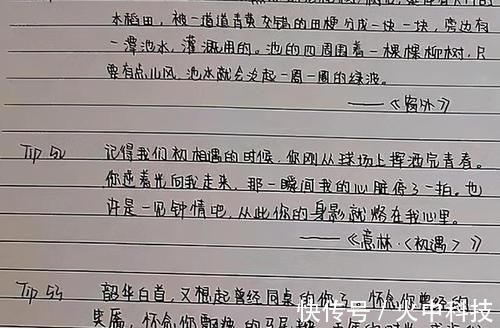 水稻田，被一道道青黄交错的田埂分成一块一块，旁边有
一潭池水，灌溉用的。池的四周围着一棵棵柳树，只
要有点儿风，池水就会泛起一周一周的绿波。
——《窗外》
Tip 52 记得我们初相遇的时候，你刚从球场上挥洒完青春。
你逆着光向我走来，那一瞬间我的心脏停了一拍。也
许是一见钟情吧，从此你的身影就烙在我心里。
——《意林·<初遇>》
Tip 53 韶华白首，又想起曾经同桌的你了，怀念你曾经的
笑靥，怀念你飘逸的马尾辫
快传号／火中科技